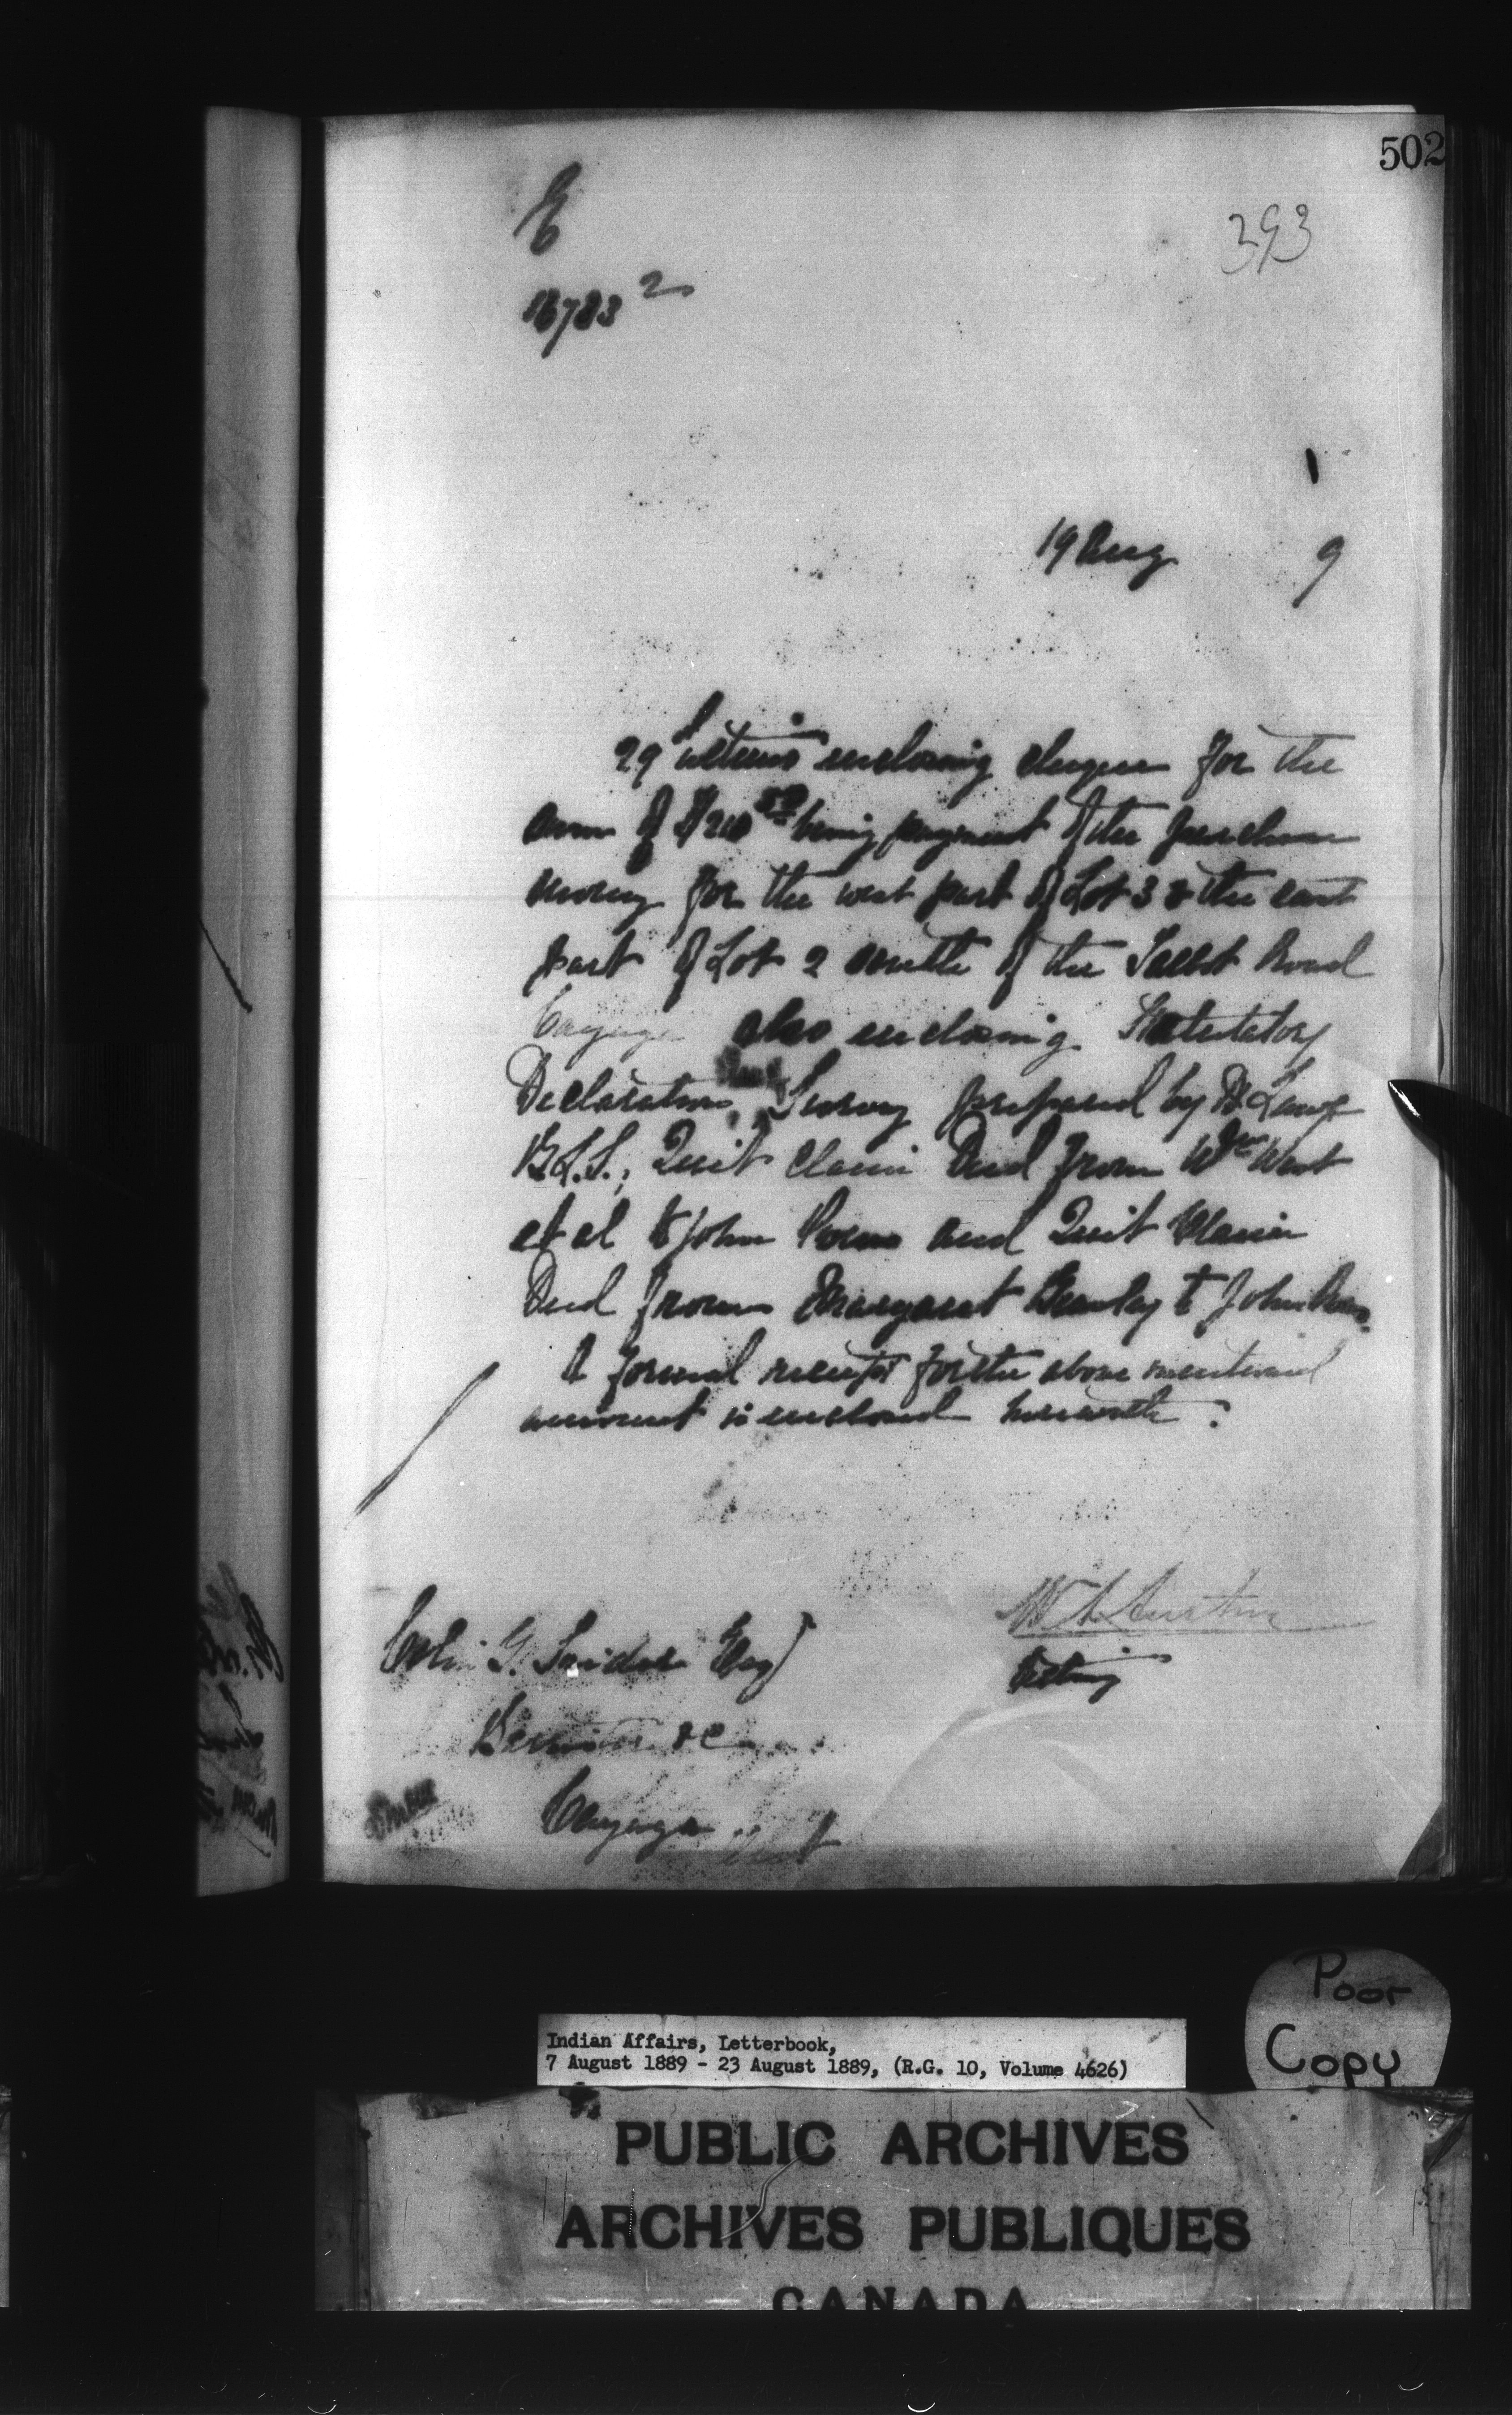 502
393
E
16783²
19 Aug 9
29 ultimo enclosing cheque for the
sum of $210 50 being payment of the purchase
money for the west part of Lot 3 & the east
part of Lot 2 south of the Talbot Road
Cayuga also enclosing Statutatory
Declaration, Survey prepared by
P.L.S.; Quit Claim Deed from Wm West
et al to John and Quit Claim
Deed from Margaret to John
A formal receipt for the above mentioned
amount is enclosed herewith.
W A Austin
Acting
Colin G. Snider Esq
Barrister &c
Cayuga
Indian Affairs, Letterbook,
7 August 1889 - 23 August 1889, (R.G. 10, Volume 4626)
Poor
Copy
PUBLIC ARCHIVES
ARCHIVES PUBLIQUES
CANADA